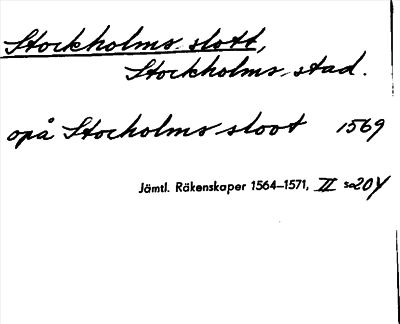 Stockholms slott,
Stockholms stad.
opå Stocholms sloot 1569
Jämtl. Räkenskaper 1564–1571, II